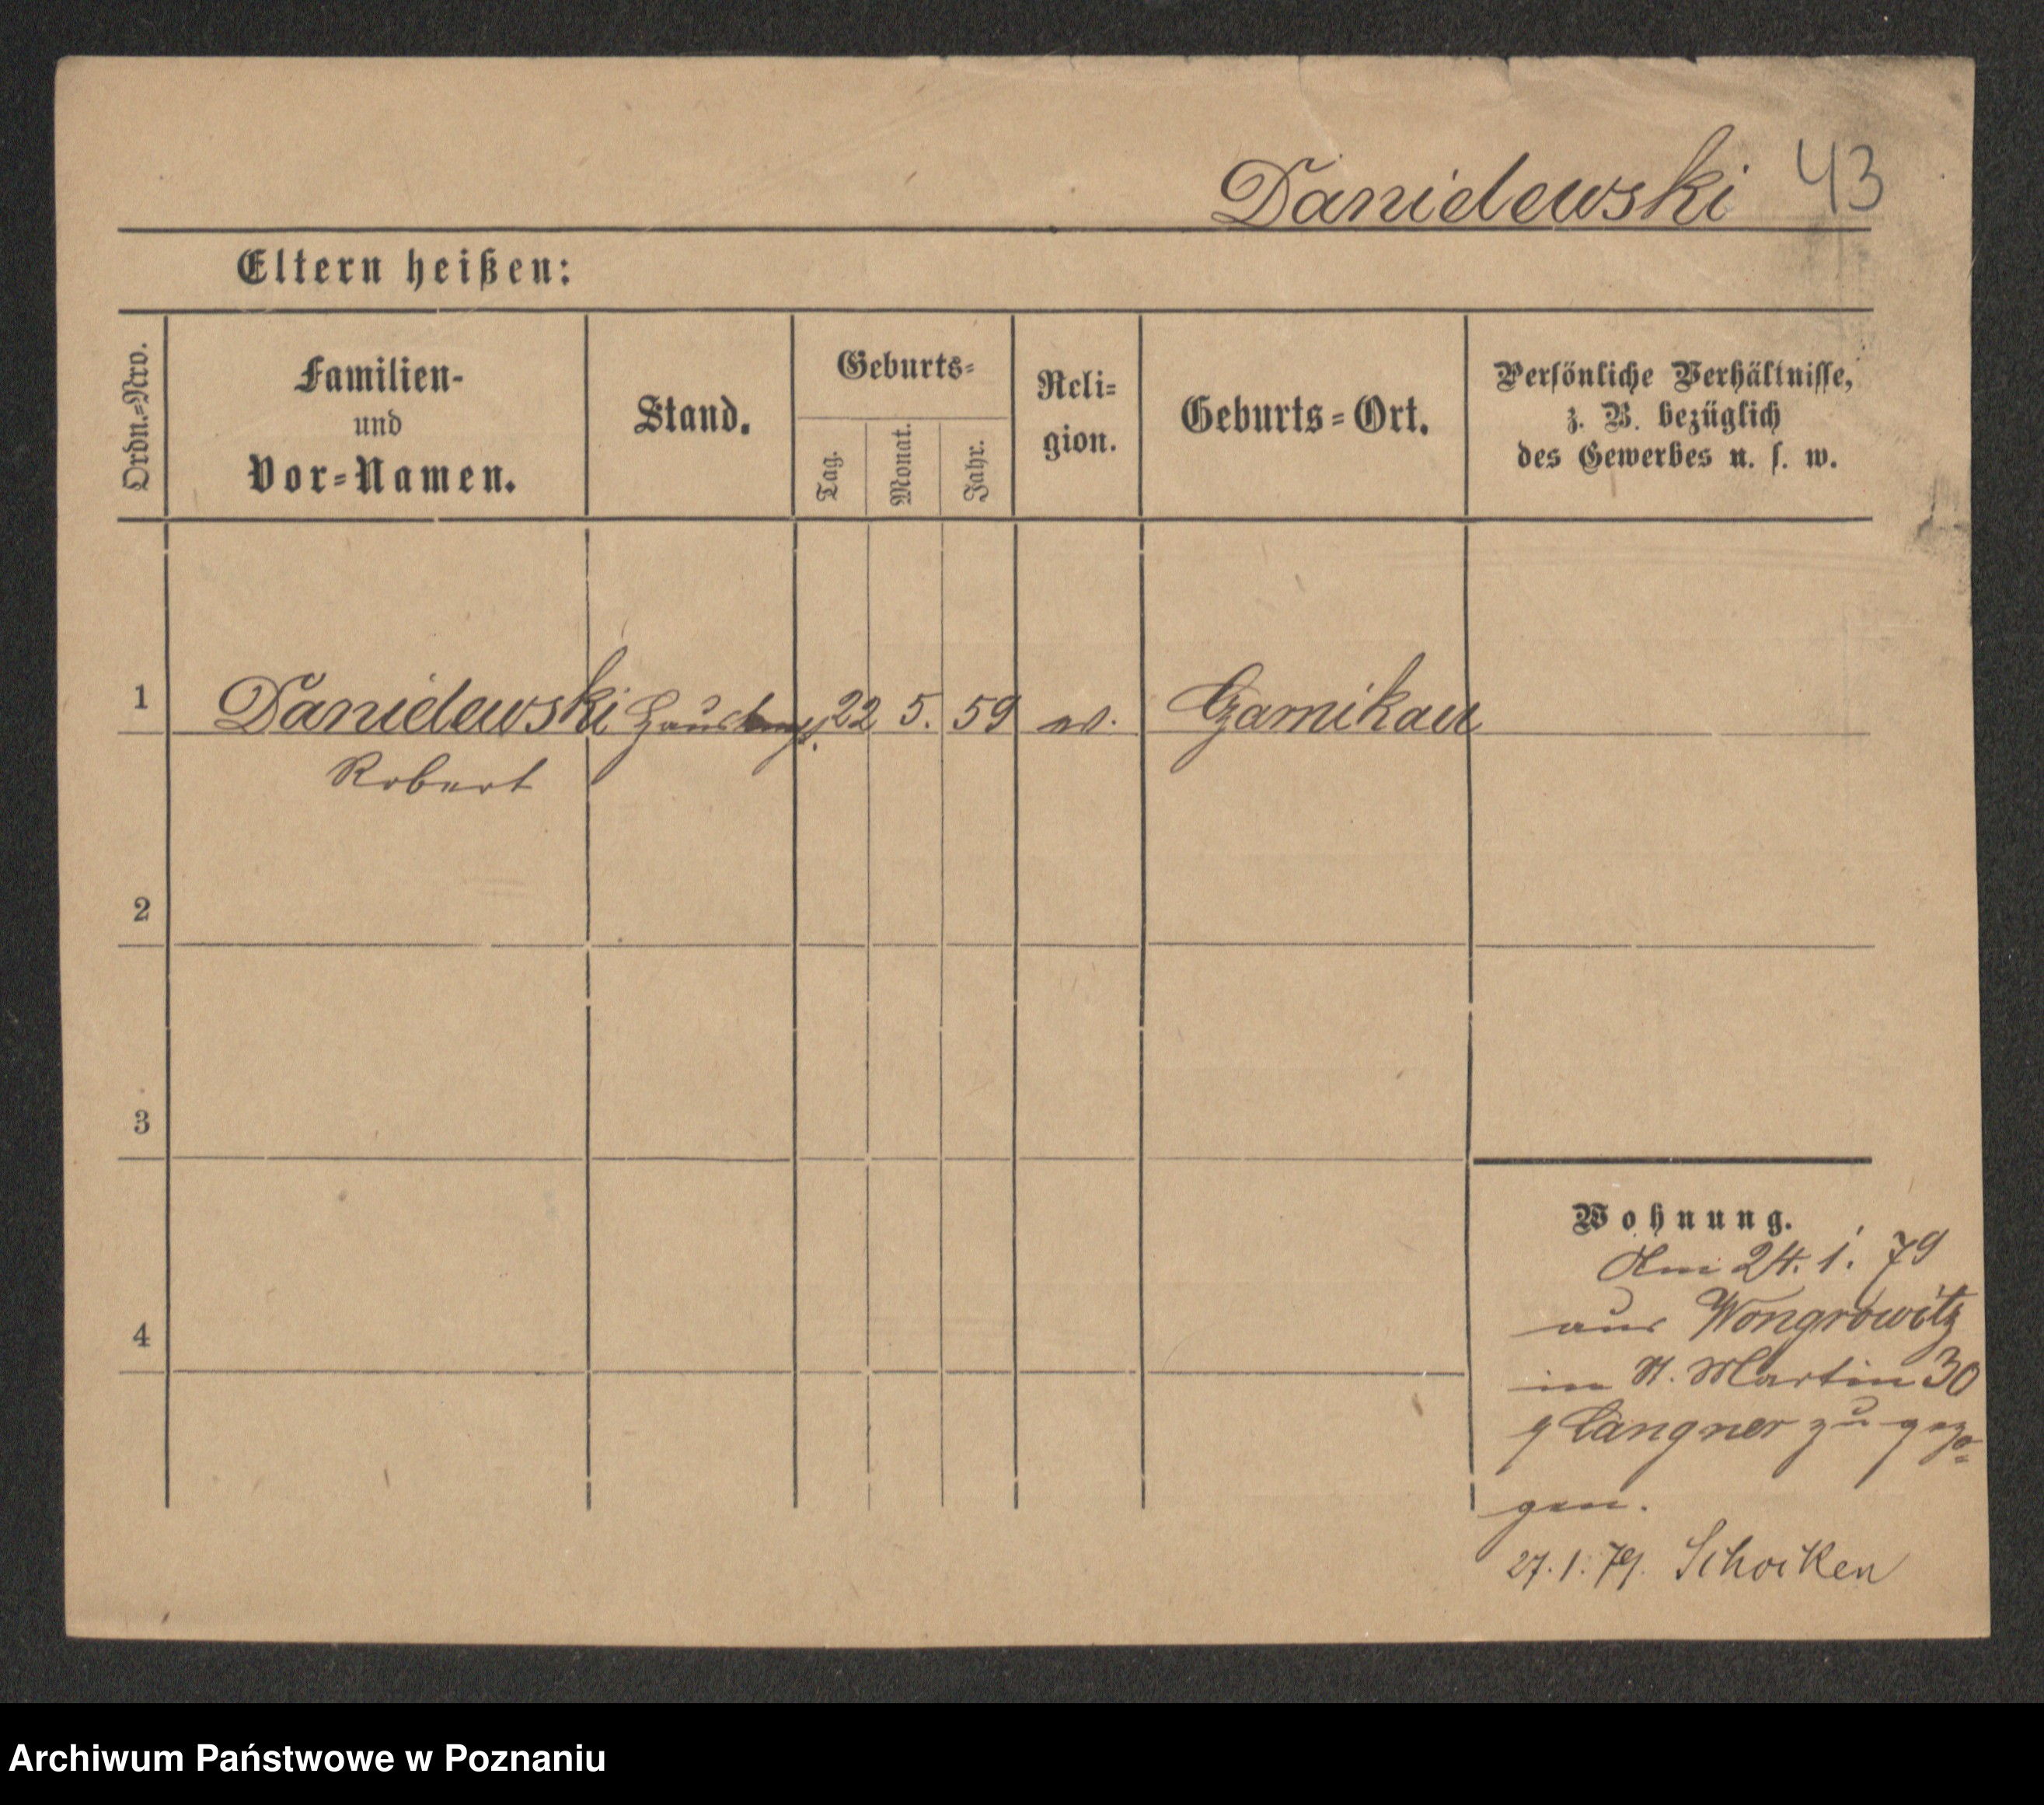 Danielewski 43
Eltern heißen:
Ordn.=Nro.
Familien-
und
Vor=Namen.
Stand.
Geburts=
Tag.
Monat.
Jahr.
Reli=
gion.
Geburts=Ort.
Persönliche Verhältnisse,
z. B. bezüglich
des Gewerbes u. s. w.
1 Danielewski 22 5. 59 Czarnikau
Robert
2
3
4
Wohnung.
Am 24. 1. 79
aus Wongrowitz
in St. Martin 30
Langner zu gezo=
gen.
27. 1. 79. Schocken
Archiwum Państwowe w Poznaniu